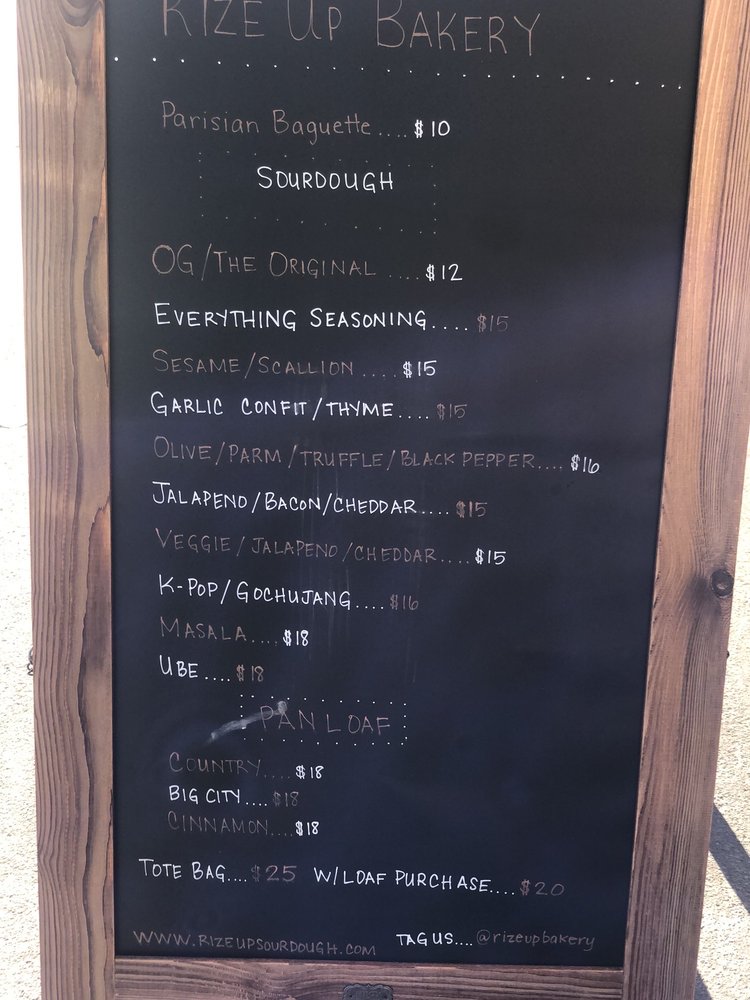 RIZE UP BAKERY
Parisian Baguette....$10
SOURDOUGH
OG/THE ORIGINAL ....$12
EVERYTHING SEASONING....$15
SESAME/SCALLION ....$15
GARLIC CONFIT/THYME....$15
OLIVE/PARM/TRUFFLE/BLACK PEPPER....$16
JALAPENO/BACON/CHEDDAR....$15
VEGGIE/JALAPENO/CHEDDAR....$15
K-POP/GOCHUJANG....$16
MASALA....$18
UBE....$18
PAN LOAF
COUNTRY....$18
BIG CITY....$18
CINNAMON....$18
TOTE BAG....$25 W/LOAF PURCHASE....$20
WWW.RIZEUPSOURDOUGH.COM TAG US....@rizeupbakery